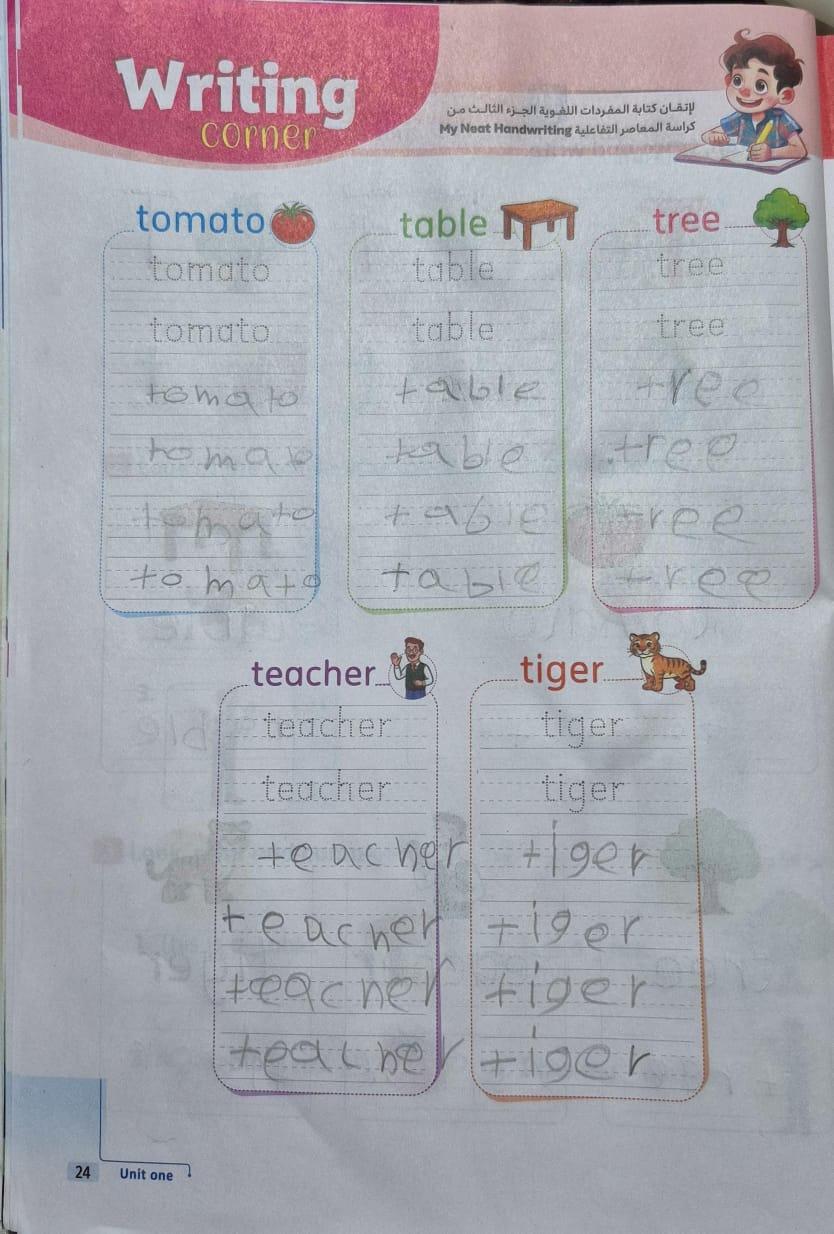 Writing
corner
لإتقان كتابة المفردات اللغوية الجزء الثالث من
كراسة المعاصر التفاعلية My Neat Handwriting
tomato
tomato
tomato
tomato
tomato
tomato
tomato
table
table
table
table
table
table
table
tree
tree
tree
tree
tree
tree
tree
teacher
teacher
teacher
teacher
teacher
teacher
teacher
tiger
tiger
tiger
tiger
tiger
tiger
tiger
24 Unit one